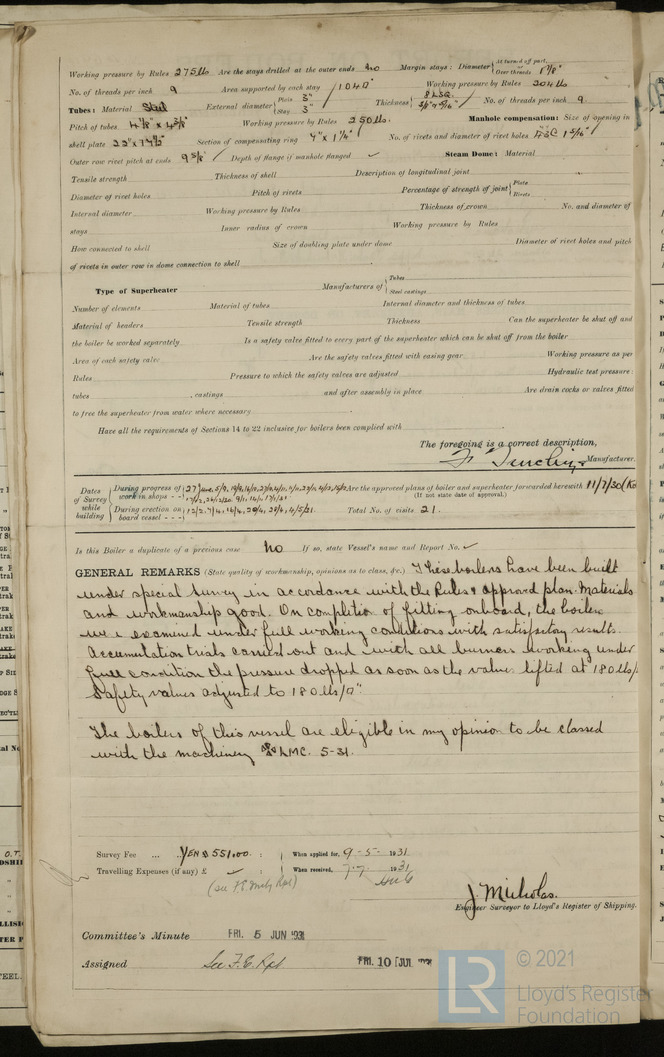 Working pressure by Rules 275 lb Are the stays drilled at the outer ends No Margin stays: Diameter { At turned off part, or Over threads 1 7/8"
No. of threads per inch 9 Area supported by each stay 104 □" Working pressure by Rules 204 lb
Tubes: Material Steel External diameter { Plain 3" Stay 3" Thickness { 8 LSG 5/16" No. of threads per inch 9
Pitch of tubes 4 1/8" x 4 3/8" Working pressure by Rules 250 lb. Manhole compensation: Size of opening in
shell plate Section of compensating ring No. of rivets and diameter of rivet holes 1 5/16"
Outer row rivet pitch at ends 9 5/8" Depth of flange if manhole flanged ✓ Steam Dome: Material
Tensile strength Thickness of shell Description of longitudinal joint
Diameter of rivet holes Pitch of rivets Percentage of strength of joint { Plate Rivets
Internal diameter Working pressure by Rules Thickness of crown No. and diameter of
stays Inner radius of crown Working pressure by Rules
How connected to shell Size of doubling plate under dome Diameter of rivet holes and pitch
of rivets in outer row in dome connection to shell
Type of Superheater Manufacturers of { Tubes Steel castings
Number of elements Material of tubes Internal diameter and thickness of tubes
Material of headers Tensile strength Thickness Can the superheater be shut off and
the boiler be worked separately Is a safety valve fitted to every part of the superheater which can be shut off from the boiler
Area of each safety valve Are the safety valves fitted with easing gear Working pressure as per
Rules Pressure to which the safety valves are adjusted Hydraulic test pressure:
tubes , castings and after assembly in place Are drain cocks or valves fitted
to free the superheater from water where necessary
Have all the requirements of Sections 14 to 22 inclusive for boilers been complied with
The foregoing is a correct description,
Manufacturer.
Dates of Survey while building { During progress of work in shops - - Are the approved plans of boiler and superheater forwarded herewith 11/7/30
(If not state date of approval.)
During erection on board vessel - - - Total No. of visits 21.
Is this Boiler a duplicate of a previous case No If so, state Vessel's name and Report No. ✓
GENERAL REMARKS (State quality of workmanship, opinions as to class, &c.) These boilers have been built
under special survey in accordance with the Rules & approved plan. Materials
and workmanship good. On completion of fitting onboard, the boilers
were examined under full working conditions with satisfactory results.
Accumulation trials carried out and with all burners working under
full condition the pressure dropped as soon as the valves lifted at 180 lbs/
Safety valves adjusted to 180 lbs/□".
The boilers of this vessel are eligible in my opinion to be classed
with the machinery LMC. 5-31.
Survey Fee ... YEN 551.00 : When applied for, 9-5-1931
Travelling Expenses (if any) £ ✓ : When received, 7.7.1931
J. Nicholas.
Engineer Surveyor to Lloyd's Register of Shipping.
Committee's Minute FRI. 5 JUN 1931
Assigned See F.E. Rpt FRI. 10 JUL 1931
LR © 2021
Lloyd's Register
Foundation